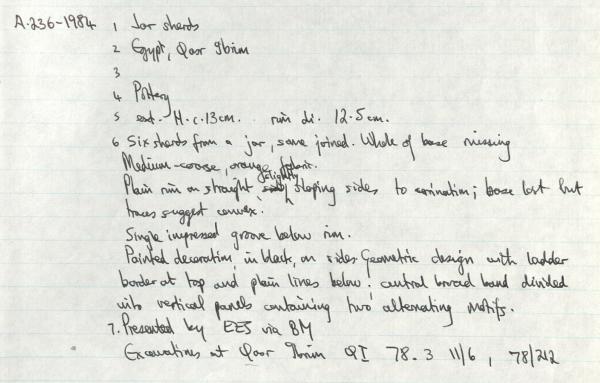 A.236-1984 1 Jar sherds
2 Egypt, Qasr Ibrim
3
4 Pottery
5 est. H.c.13cm. rim di. 12.5cm.
6 Six sherds from a jar, some joined. Whole of base missing
Medium-coarse, orange fabric.
Plain rim on straight slightly sloping sides to carination; base lost but
traces suggest convex.
Single impressed groove below rim.
Painted decoration in black, on sides. Geometric design with ladder
border at top and plain lines below: central broad band divided
into vertical panels containing two alternating motifs.
7. Presented by EES via BM
Excavations at Qasr Ibrim QI 78.3 11/6, 78/212